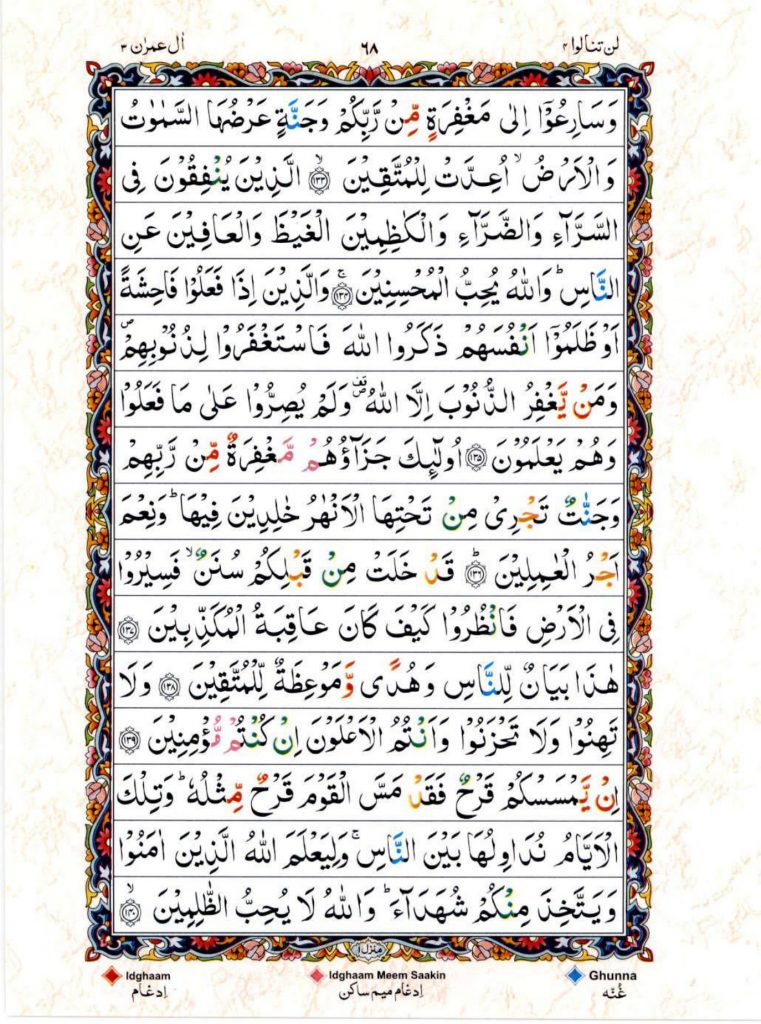 لن تنالوا ۴
٦٨
اٰل عمرٰن ۳
وَسَارِعُوْۤا اِلٰى مَغْفِرَةٍ مِّنْ رَّبِّكُمْ وَجَنَّةٍ عَرْضُهَا السَّمٰوٰتُ
وَالْاَرْضُ ۙ اُعِدَّتْ لِلْمُتَّقِيْنَ ۙ﴿۱۳۳﴾ الَّذِيْنَ يُنْفِقُوْنَ فِى
السَّرَّآءِ وَالضَّرَّآءِ وَالْكٰظِمِيْنَ الْغَيْظَ وَالْعَافِيْنَ عَنِ
النَّاسِ ؕ وَاللّٰهُ يُحِبُّ الْمُحْسِنِيْنَ ۚ﴿۱۳۴﴾ وَالَّذِيْنَ اِذَا فَعَلُوْا فَاحِشَةً
اَوْ ظَلَمُوْۤا اَنْفُسَهُمْ ذَكَرُوا اللّٰهَ فَاسْتَغْفَرُوْا لِذُنُوْبِهِمْ ۪
وَمَنْ يَّغْفِرُ الذُّنُوْبَ اِلَّا اللّٰهُ ۪ۗ وَلَمْ يُصِرُّوْا عَلٰى مَا فَعَلُوْا
وَهُمْ يَعْلَمُوْنَ ﴿۱۳۵﴾ اُولٰٓئِكَ جَزَآؤُهُمْ مَّغْفِرَةٌ مِّنْ رَّبِّهِمْ
وَجَنّٰتٌ تَجْرِىْ مِنْ تَحْتِهَا الْاَنْهٰرُ خٰلِدِيْنَ فِيْهَا ؕ وَنِعْمَ
اَجْرُ الْعٰمِلِيْنَ ؕ﴿۱۳۶﴾ قَدْ خَلَتْ مِنْ قَبْلِكُمْ سُنَنٌ ۙ فَسِيْرُوْا
فِى الْاَرْضِ فَانْظُرُوْا كَيْفَ كَانَ عَاقِبَةُ الْمُكَذِّبِيْنَ ﴿۱۳۷﴾
هٰذَا بَيَانٌ لِّلنَّاسِ وَهُدًى وَّمَوْعِظَةٌ لِّلْمُتَّقِيْنَ ﴿۱۳۸﴾ وَلَا
تَهِنُوْا وَلَا تَحْزَنُوْا وَاَنْتُمُ الْاَعْلَوْنَ اِنْ كُنْتُمْ مُّؤْمِنِيْنَ ﴿۱۳۹﴾
اِنْ يَّمْسَسْكُمْ قَرْحٌ فَقَدْ مَسَّ الْقَوْمَ قَرْحٌ مِّثْلُهٗ ؕ وَتِلْكَ
الْاَيَّامُ نُدَاوِلُهَا بَيْنَ النَّاسِ ۚ وَلِيَعْلَمَ اللّٰهُ الَّذِيْنَ اٰمَنُوْا
وَيَتَّخِذَ مِنْكُمْ شُهَدَآءَ ؕ وَاللّٰهُ لَا يُحِبُّ الظّٰلِمِيْنَ ۙ﴿۱۴۰﴾
منزل ۱
Idghaam
ادغام
Idghaam Meem Saakin
ادغام میم ساکن
Ghunna
غُنّه